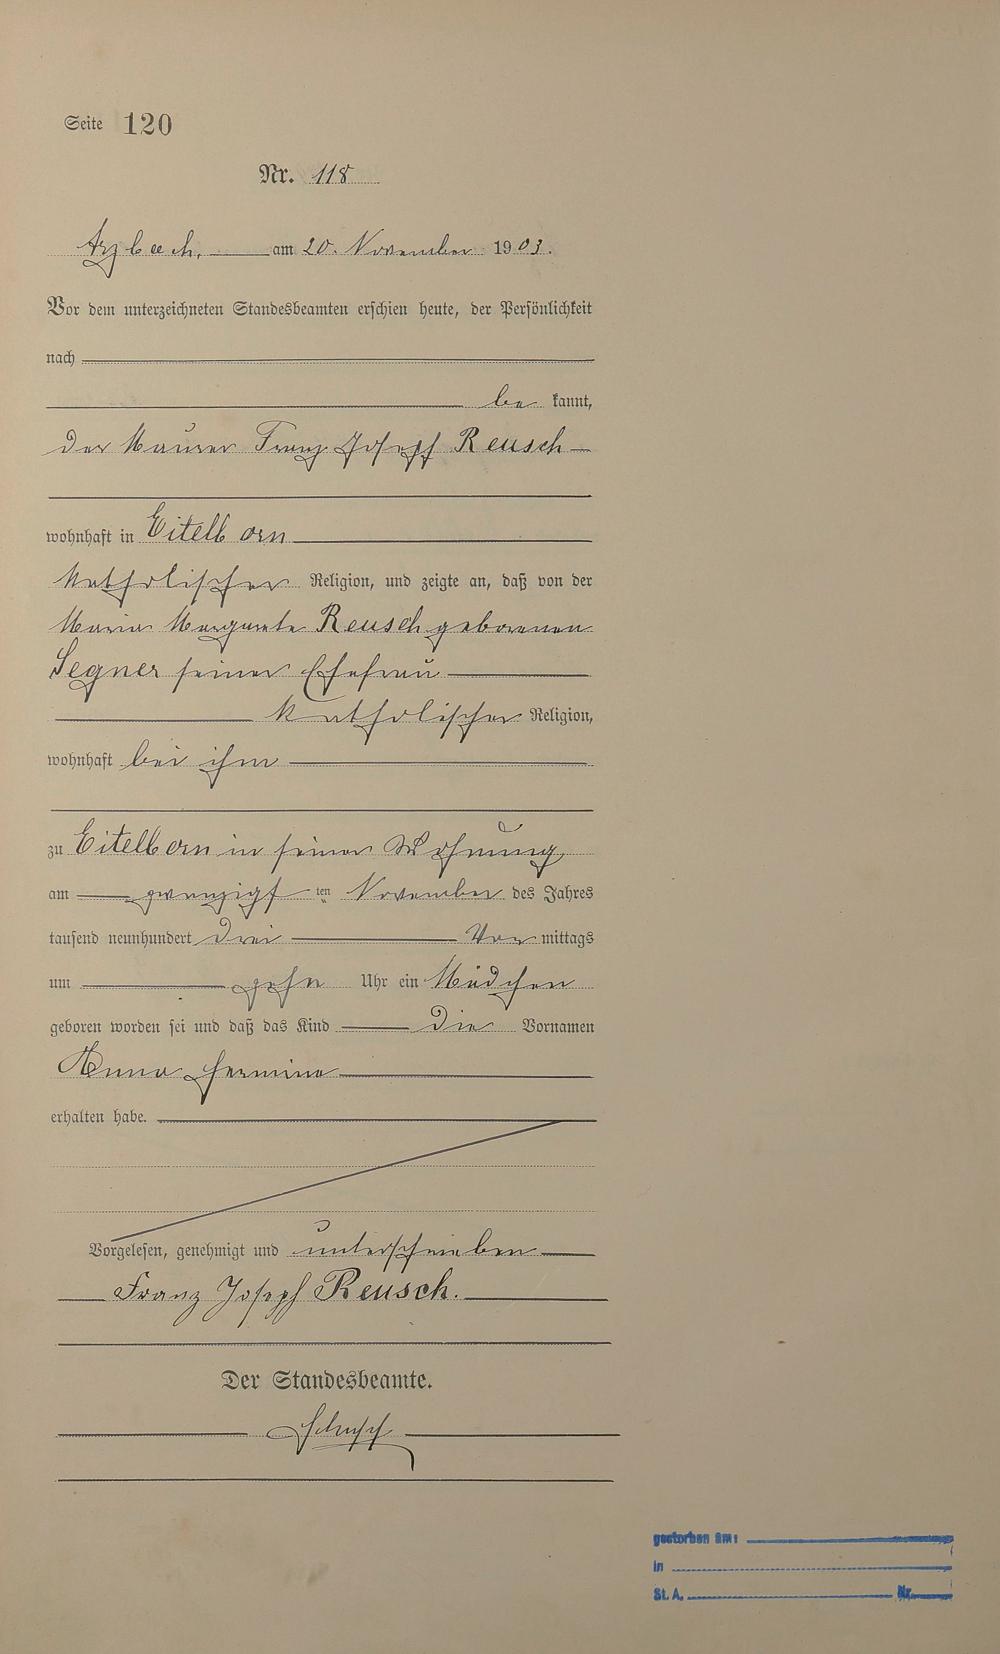 Seite 120
Nr. 118
Arzbach, am 20. November 1903.
Vor dem unterzeichneten Standesbeamten erschien heute, der Persönlichkeit
nach
be kannt,
der Maurer Franz Joseph Reusch
wohnhaft in Eitelborn
katholischer Religion, und zeigte an, daß von der
Maria Margareta Reusch geborenen
Segner seiner Ehefrau
katholischer Religion,
wohnhaft bei ihm
zu Eitelborn in seiner Wohnung
am zwanzigsten November des Jahres
tausend neunhundert drei Vor mittags
um zehn Uhr ein Mädchen
geboren worden sei und daß das Kind die Vornamen
Anna Hermine
erhalten habe.
Vorgelesen, genehmigt und unterschrieben
Franz Joseph Reusch.
Der Standesbeamte.
gestorben am:
in
St. A. Nr.